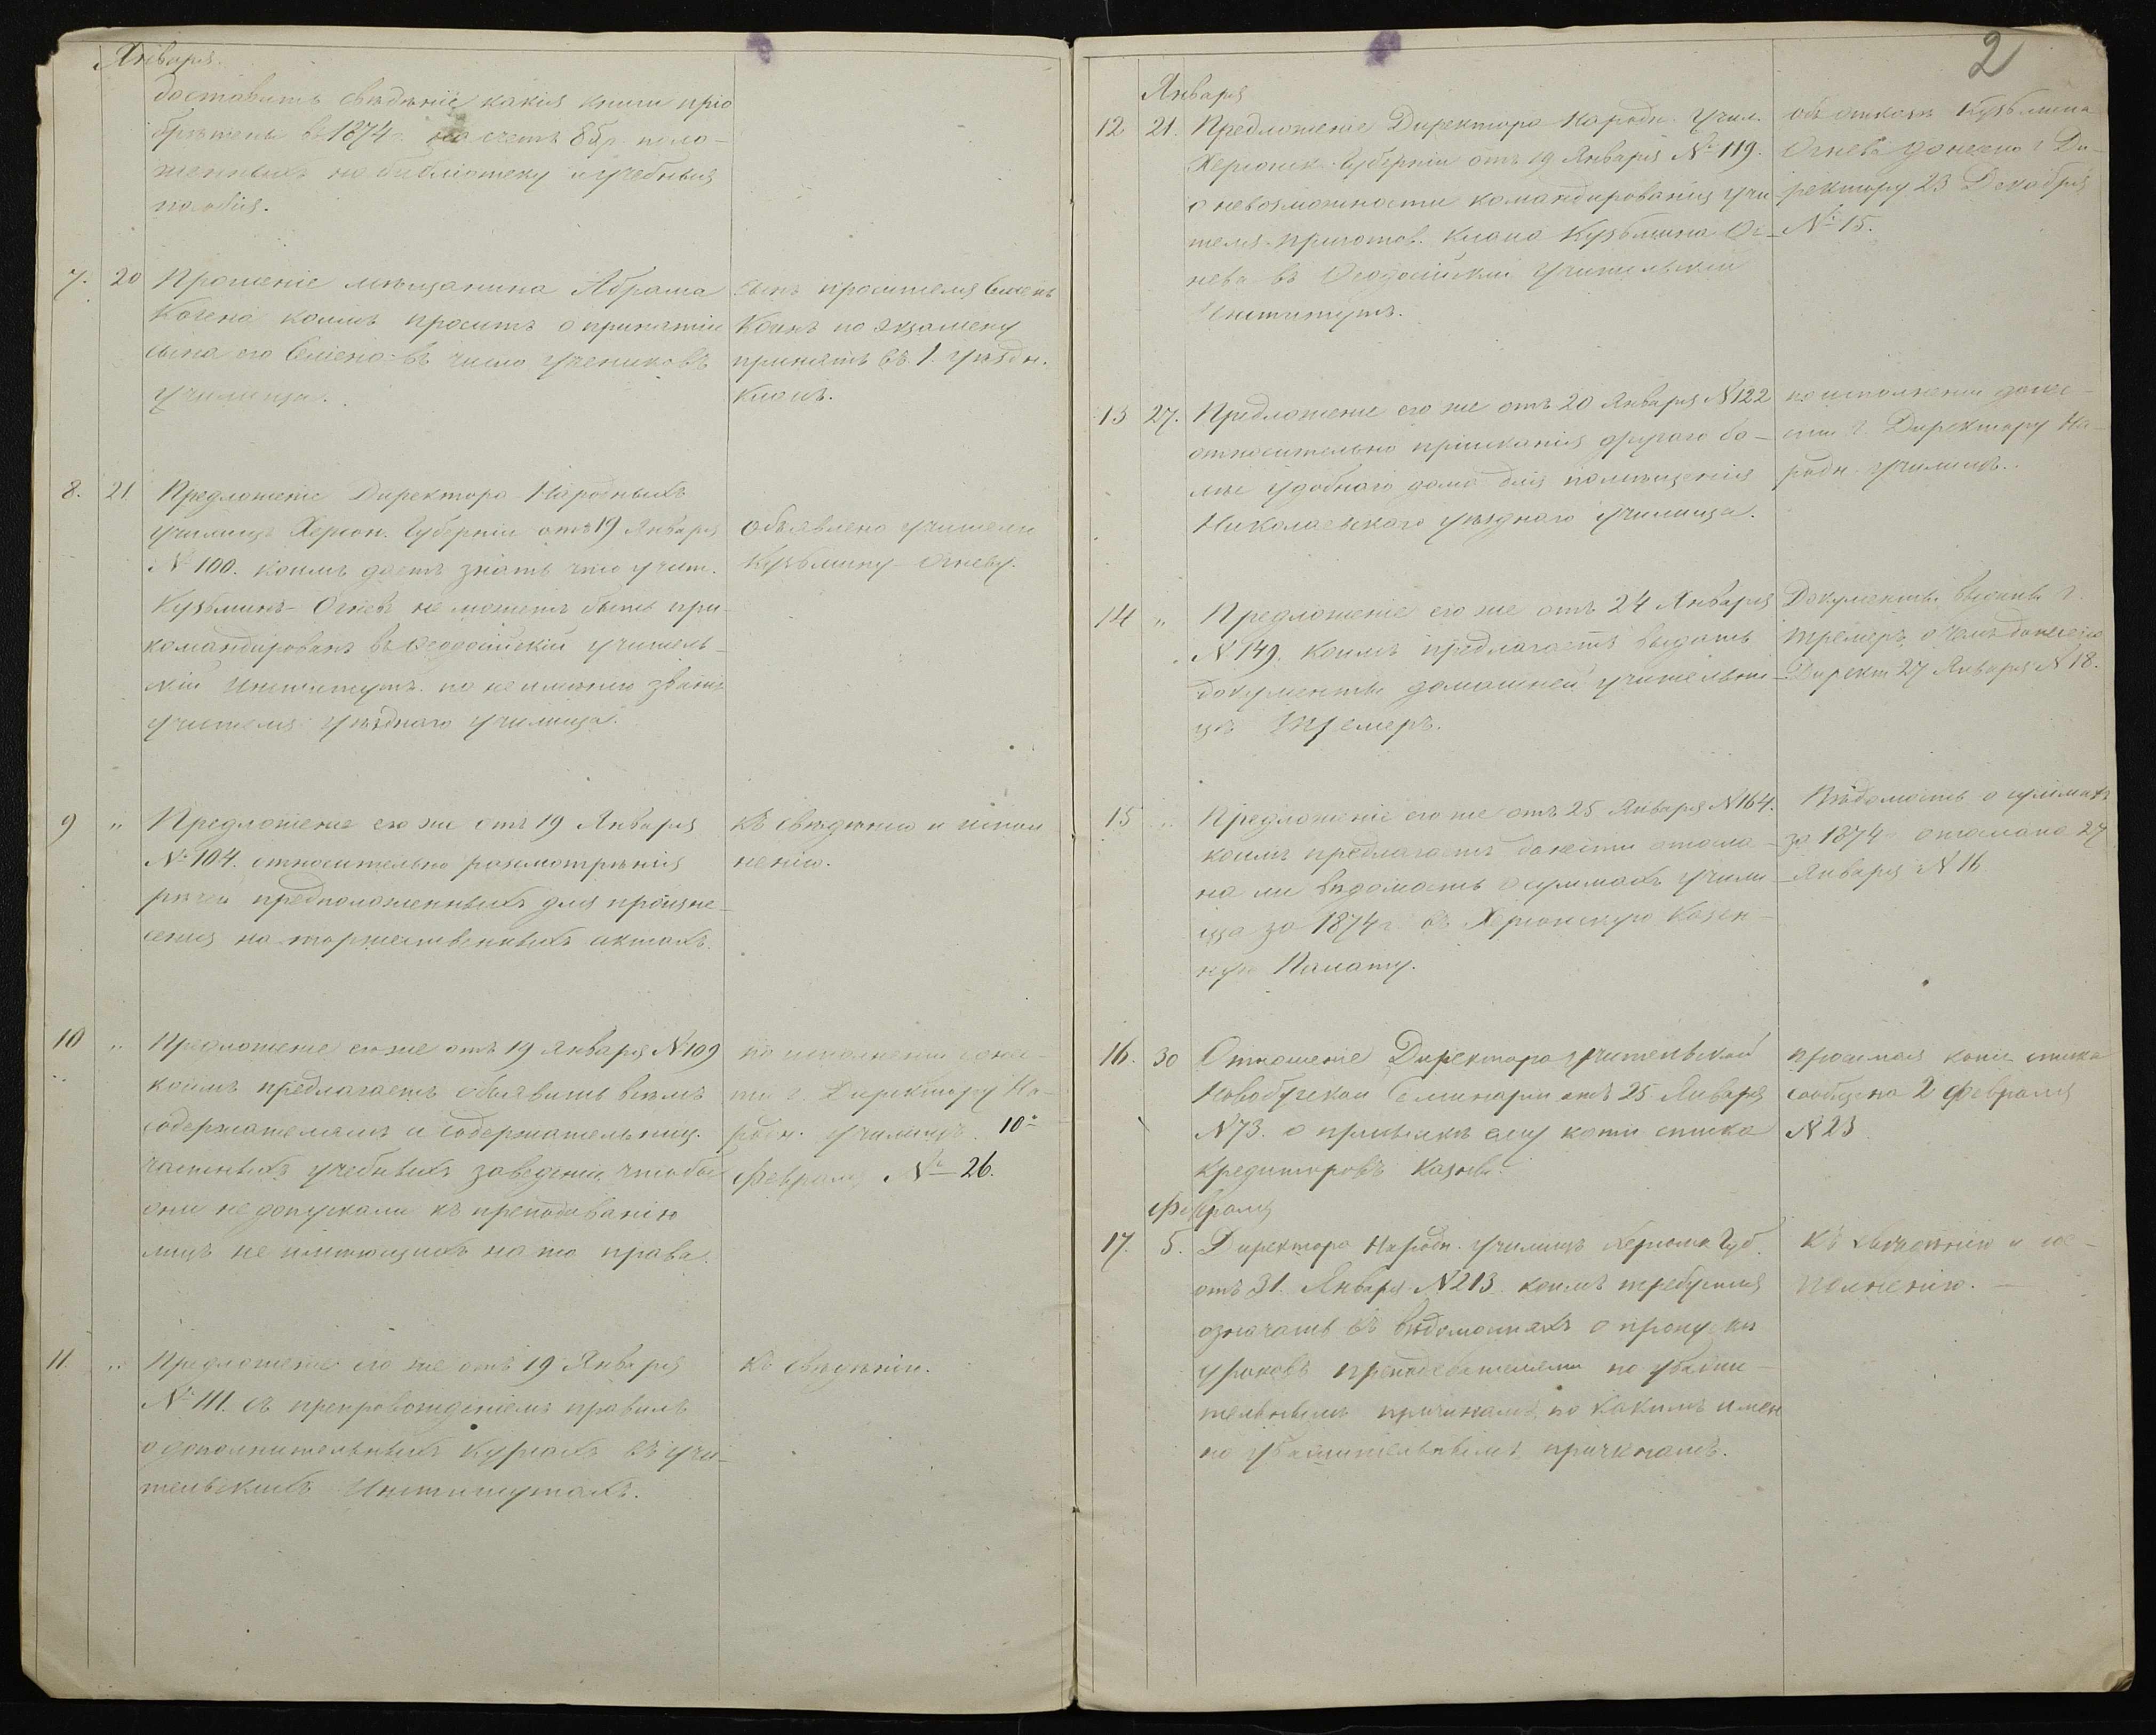 Января.
доставить свѣденіе какія книги прiо
брѣтены въ 1874 г. на счетъ 8 бр. поло-
женныхъ на библіотеку и учебныя
пособія.
7. 20 Прошеніе мѣщанина Абрама
Когена коимъ проситъ о принятіи
сына его Семена въ число учениковъ
училища.
Сынъ просителя Семенъ
Когенъ по экзамену
принятъ въ 1. уѣздн.
классъ.
8. 21 Предложеніе Директора Народныхъ
училищъ Херсон. Губерніи отъ 19 Января
№ 100. коимъ даетъ знать что учит.
Кузьминъ-Огневъ не можетъ быть при-
командированъ въ Ѳеодосійскій учитель-
скій Институтъ по неимѣнію званія
учителя уѣзднаго училища.
Объявлено учителю
Кузьмину-Огневу.
9 " Предложеніе его же отъ 19 Января
№ 104. относительно разсмотрѣнія
рѣчей предположенныхъ для произне-
сенія на торжественныхъ актахъ.
Къ свѣдѣнію и испол
ненію.
10 " Предложеніе его же отъ 19 Января № 109
коимъ предлагаетъ объявить всѣмъ
содержателямъ и содержательниц.
частныхъ учебныхъ заведеній, чтобы
они не допускали къ преподаванію
лицъ не имѣющихъ на то права.
по исполненіи донес-
ти г. Директору На-
родн. училищъ 10-
Февраля № 26.
11. " Предложеніе его же отъ 19 Января
№ 111. съ препровожденіемъ правилъ
о дополнительныхъ курсахъ въ учи-
тельскихъ Институтахъ.
Къ свѣдѣнію.
2
Января
12 21. Предложеніе Директора Народн. Учил.
Херсонск. Губерніи отъ 19 Января № 119.
о невозможности командированія учи
теля приготов. класса Кузьмина-Ог-
нева въ Ѳеодосійскій Учительскій
Институтъ.
объ отказѣ Кузьмина
Огнева донесено г. Ди-
ректору 23 Декабря
№ 15.
13 27. Предложеніе его же отъ 20 Января № 122
относительно пріисканія другаго бо-
лѣе удобнаго дома для помѣщенія
Николаевскаго уѣзднаго училища.
по исполненіи донес-
ти г. Директору На-
родн. училищъ.
14 " Предложеніе его же отъ 24 Января
№ 149. коимъ предлагаетъ выдать
документы домашней учительни-
цѣ Тремеръ.
Документы высланы г.
Тремеръ, о чемъ донесено
Директ. 27 Января № 18.
15 " Предложеніе его же отъ 25 Января № 164.
коимъ предлагаетъ донести отосла-
на ли вѣдомость о суммахъ учили-
ща за 1874 г. въ Херсонскую Казен-
ную Палату.
Вѣдомость о суммахъ
за 1874 г. отослана 27
Января № 16
16. 30 Отношеніе Директора учительской
Новобугской Семинаріи отъ 25 Января
№ 73. о присылкѣ ему копіи списка
кредиторовъ казны.
просимая копія списка
сообщена 2 Февраля
№ 23
Февраля
17. 5. Директора Народн. училищъ Херсонск. Губ.
отъ 31. Января № 213. коимъ требуется
означать въ вѣдомостяхъ о пропускѣ
уроковъ преподавателями по уважи-
тельнымъ причинамъ, по какимъ имен
но уважительнымъ причинамъ.
Къ свѣдѣнію и ис-
полненію.